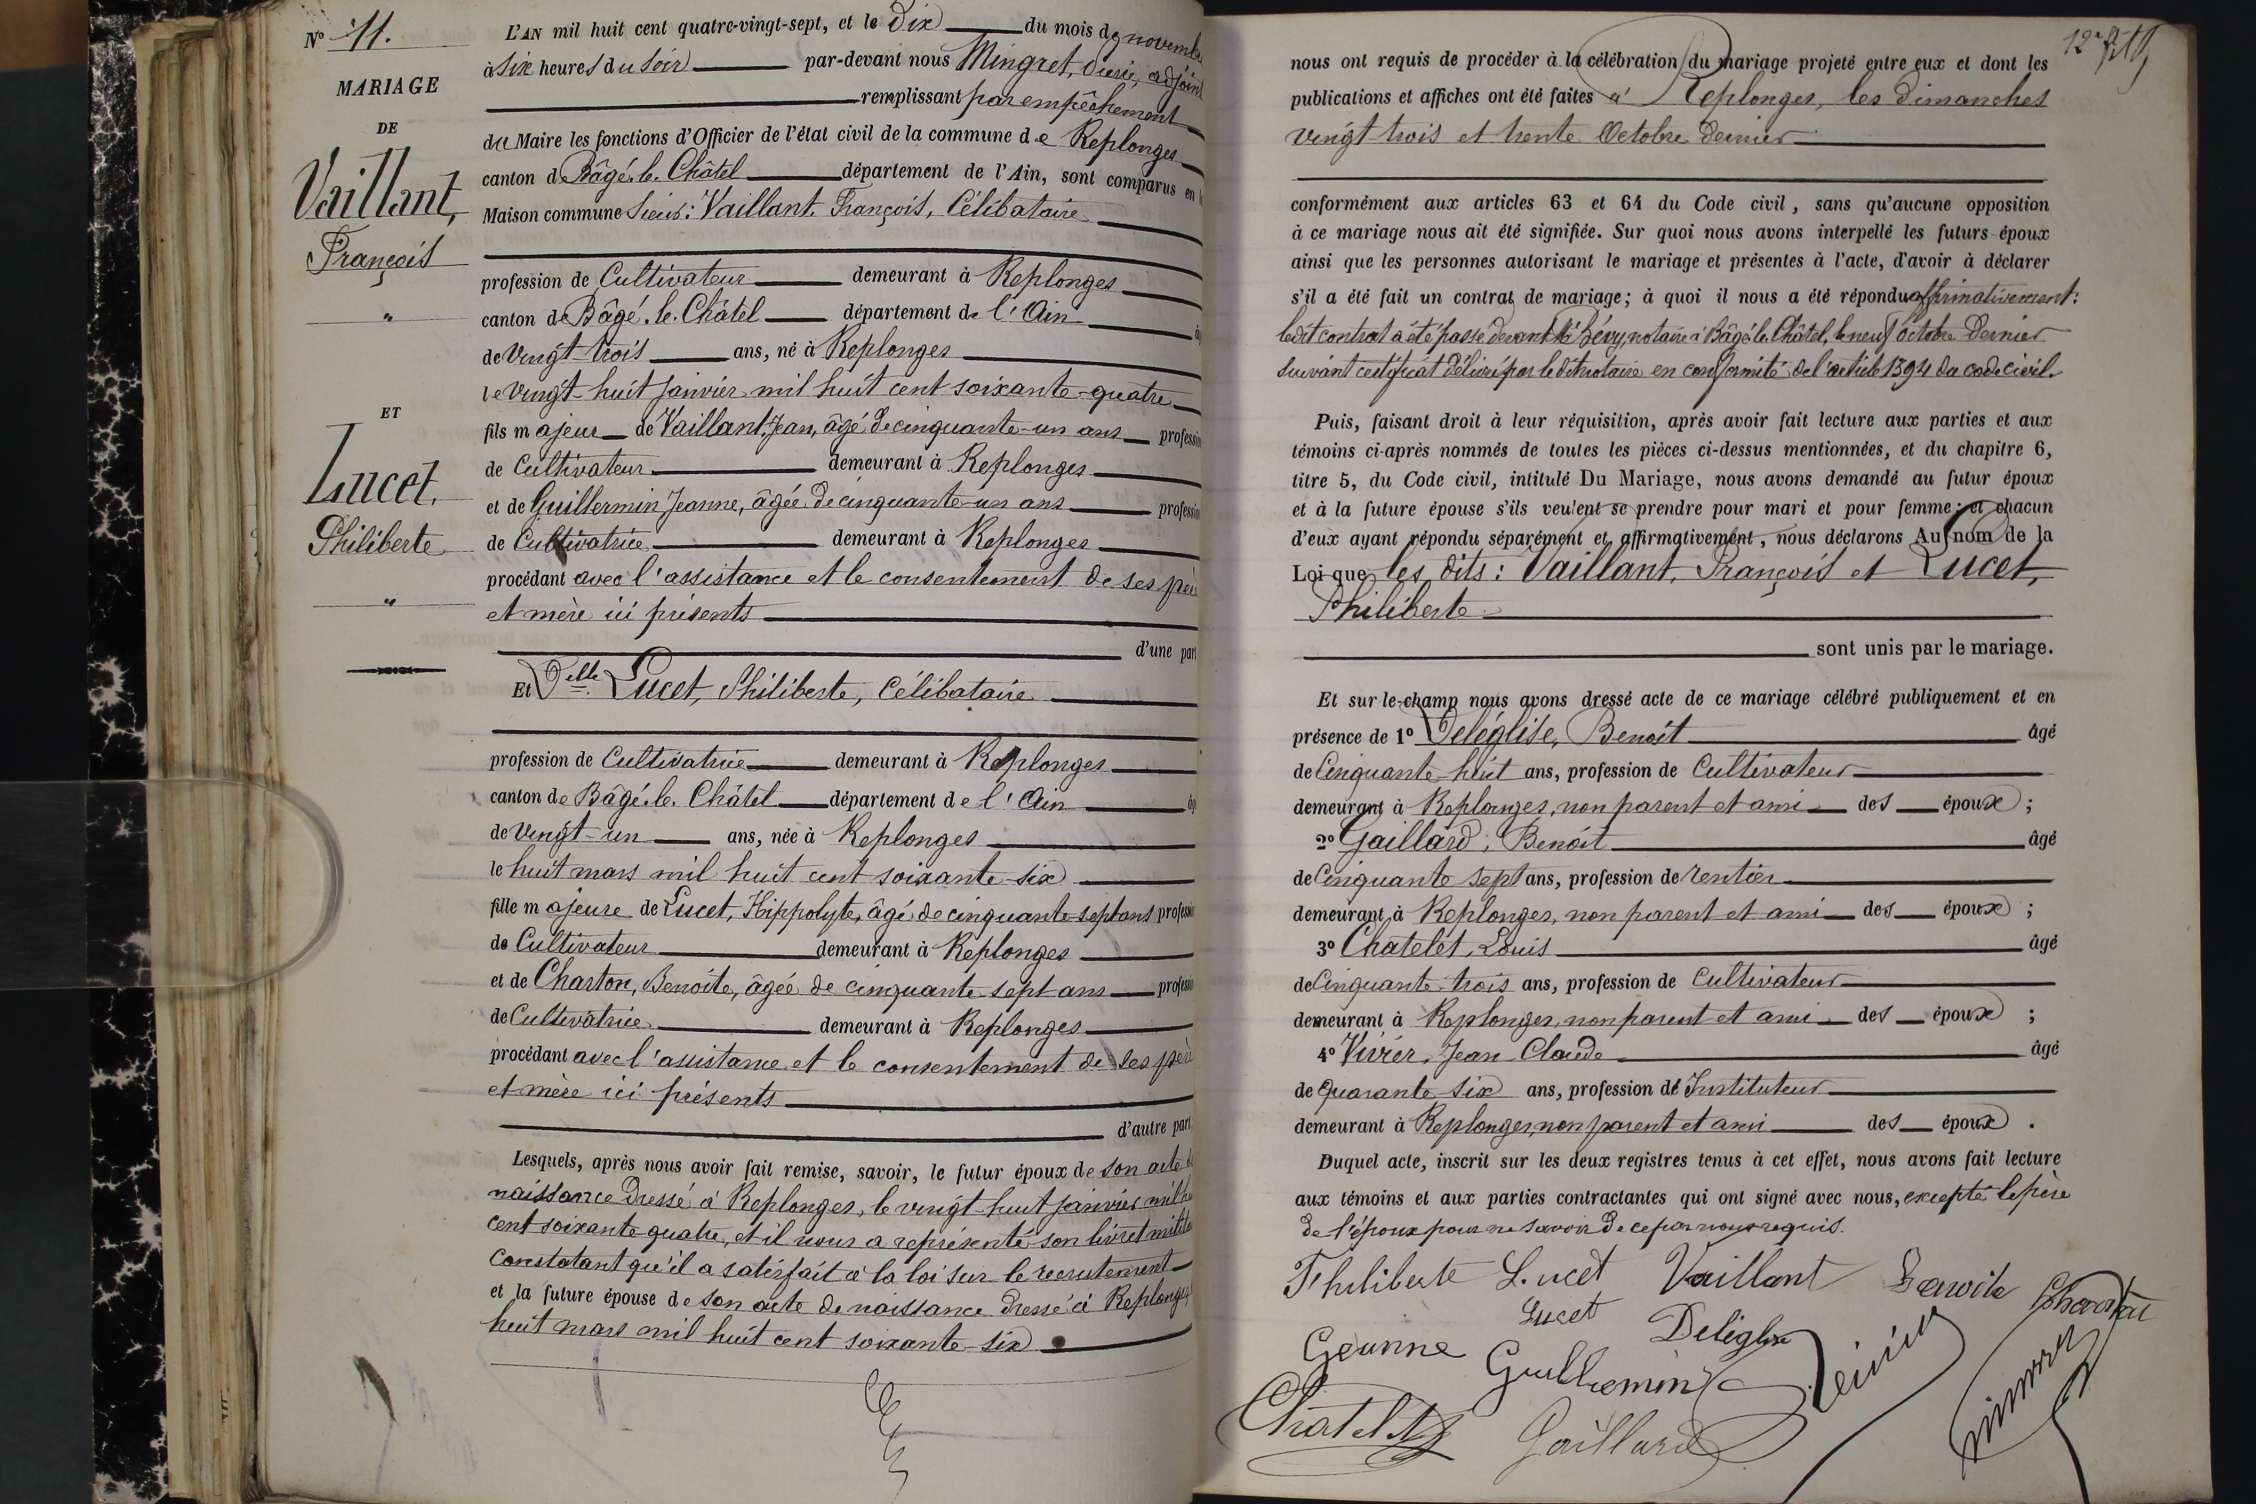 N° 11.
MARIAGE
DE
Vaillant,
François
"
ET
Lucet,
Philiberte
"
L'AN mil huit cent quatre-vingt-sept, et le dix du mois de novembre
à six heures du soir par-devant nous Mingret, adjoint
remplissant par empêchement
du Maire les fonctions d'Officier de l'état civil de la commune de Replonges
canton de Bâgé-le-Châtel département de l'Ain, sont comparus en
Maison commune Sieur : Vaillant, François, Célibataire
profession de Cultivateur demeurant à Replonges
canton de Bâgé-le-Châtel département de l'Ain
de vingt-trois ans, né à Replonges
le vingt-huit janvier mil huit cent soixante-quatre
fils majeur de Vaillant, Jean, âgé de cinquante-un ans profession
de Cultivateur demeurant à Replonges
et de Guillermin Jeanne, âgée de cinquante-un ans profession
de Cultivatrice demeurant à Replonges
procédant avec l'assistance et le consentement de ses père
et mère ici présents
d'une part
Et Delle Lucet, Philiberte, Célibataire
profession de Cultivatrice demeurant à Replonges
canton de Bâgé-le-Châtel département de l'Ain
de vingt-un ans, née à Replonges
le huit mars mil huit cent soixante-six
fille majeure de Lucet, Hippolyte, âgé de cinquante-sept ans profession
de Cultivateur demeurant à Replonges
et de Charton, Benoite, âgée de cinquante-sept ans profession
de Cultivatrice demeurant à Replonges
procédant avec l'assistance et le consentement de ses père
et mère ici présents
d'autre part
Lesquels, après nous avoir fait remise, savoir, le futur époux de son acte de
naissance dressé à Replonges, le vingt-huit janvier mil
cent soixante quatre, et il nous a représenté son livret
constatant qu'il a satisfait à la loi sur le recrutement
et la future épouse de son acte de naissance dressé à Replonges
huit mars mil huit cent soixante-six
nous ont requis de procéder à la célébration du mariage projeté entre eux et dont les
publications et affiches ont été faites à Replonges, les dimanches
vingt trois et trente Octobre dernier
conformément aux articles 63 et 64 du Code civil, sans qu'aucune opposition
à ce mariage nous ait été signifiée. Sur quoi nous avons interpellé les futurs époux
ainsi que les personnes autorisant le mariage et présentes à l'acte, d'avoir à déclarer
s'il a été fait un contrat de mariage ; à quoi il nous a été répondu affirmativement :
ledit contrat a été passé devant Me Bévy, notaire à Bâgé-le-Châtel, le neuf octobre dernier
suivant certificat délivré par ledit notaire en conformité de l'article 1394 du code civil.
Puis, faisant droit à leur réquisition, après avoir fait lecture aux parties et aux
témoins ci-après nommés de toutes les pièces ci-dessus mentionnées, et du chapitre 6,
titre 5, du Code civil, intitulé Du Mariage, nous avons demandé au futur époux
et à la future épouse s'ils veulent se prendre pour mari et pour femme ; et chacun
d'eux ayant répondu séparément et affirmativement, nous déclarons Au nom de la
Loi que les dits : Vaillant, François et Lucet,
Philiberte
sont unis par le mariage.
Et sur-le-champ nous avons dressé acte de ce mariage célébré publiquement et en
présence de 1° Deléglise, Benoit âgé
de Cinquante-huit ans, profession de Cultivateur
demeurant à Replonges, non parent et ami des époux ;
2° Gaillard, Benoit âgé
de Cinquante sept ans, profession de rentier
demeurant à Replonges, non parent et ami des époux ;
3° Chatelet, Louis âgé
de Cinquante-trois ans, profession de Cultivateur
demeurant à Replonges, non parent et ami des époux ;
4° Vivier, Jean Claude âgé
de Quarante-six ans, profession de Instituteur
demeurant à Replonges, non parent et ami des époux.
Duquel acte, inscrit sur les deux registres tenus à cet effet, nous avons fait lecture
aux témoins et aux parties contractantes qui ont signé avec nous, excepté le père
de l'époux pour ne savoir de ce par nous requis.
Philiberte Lucet Vaillant Benoite Charton
Lucet Deléglise
Geanne Guillermin Vivier
Chatelet Gaillard